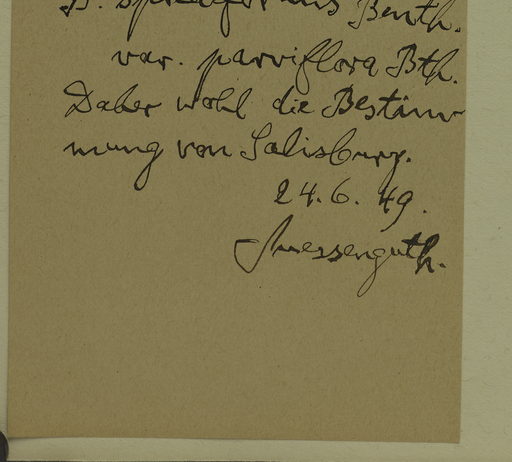 B. spicaeformis Benth.
var. parviflora Bth.
Daher wohl die Bestim-
mung von Salisburg.
24. 6. 49.
Suessenguth.